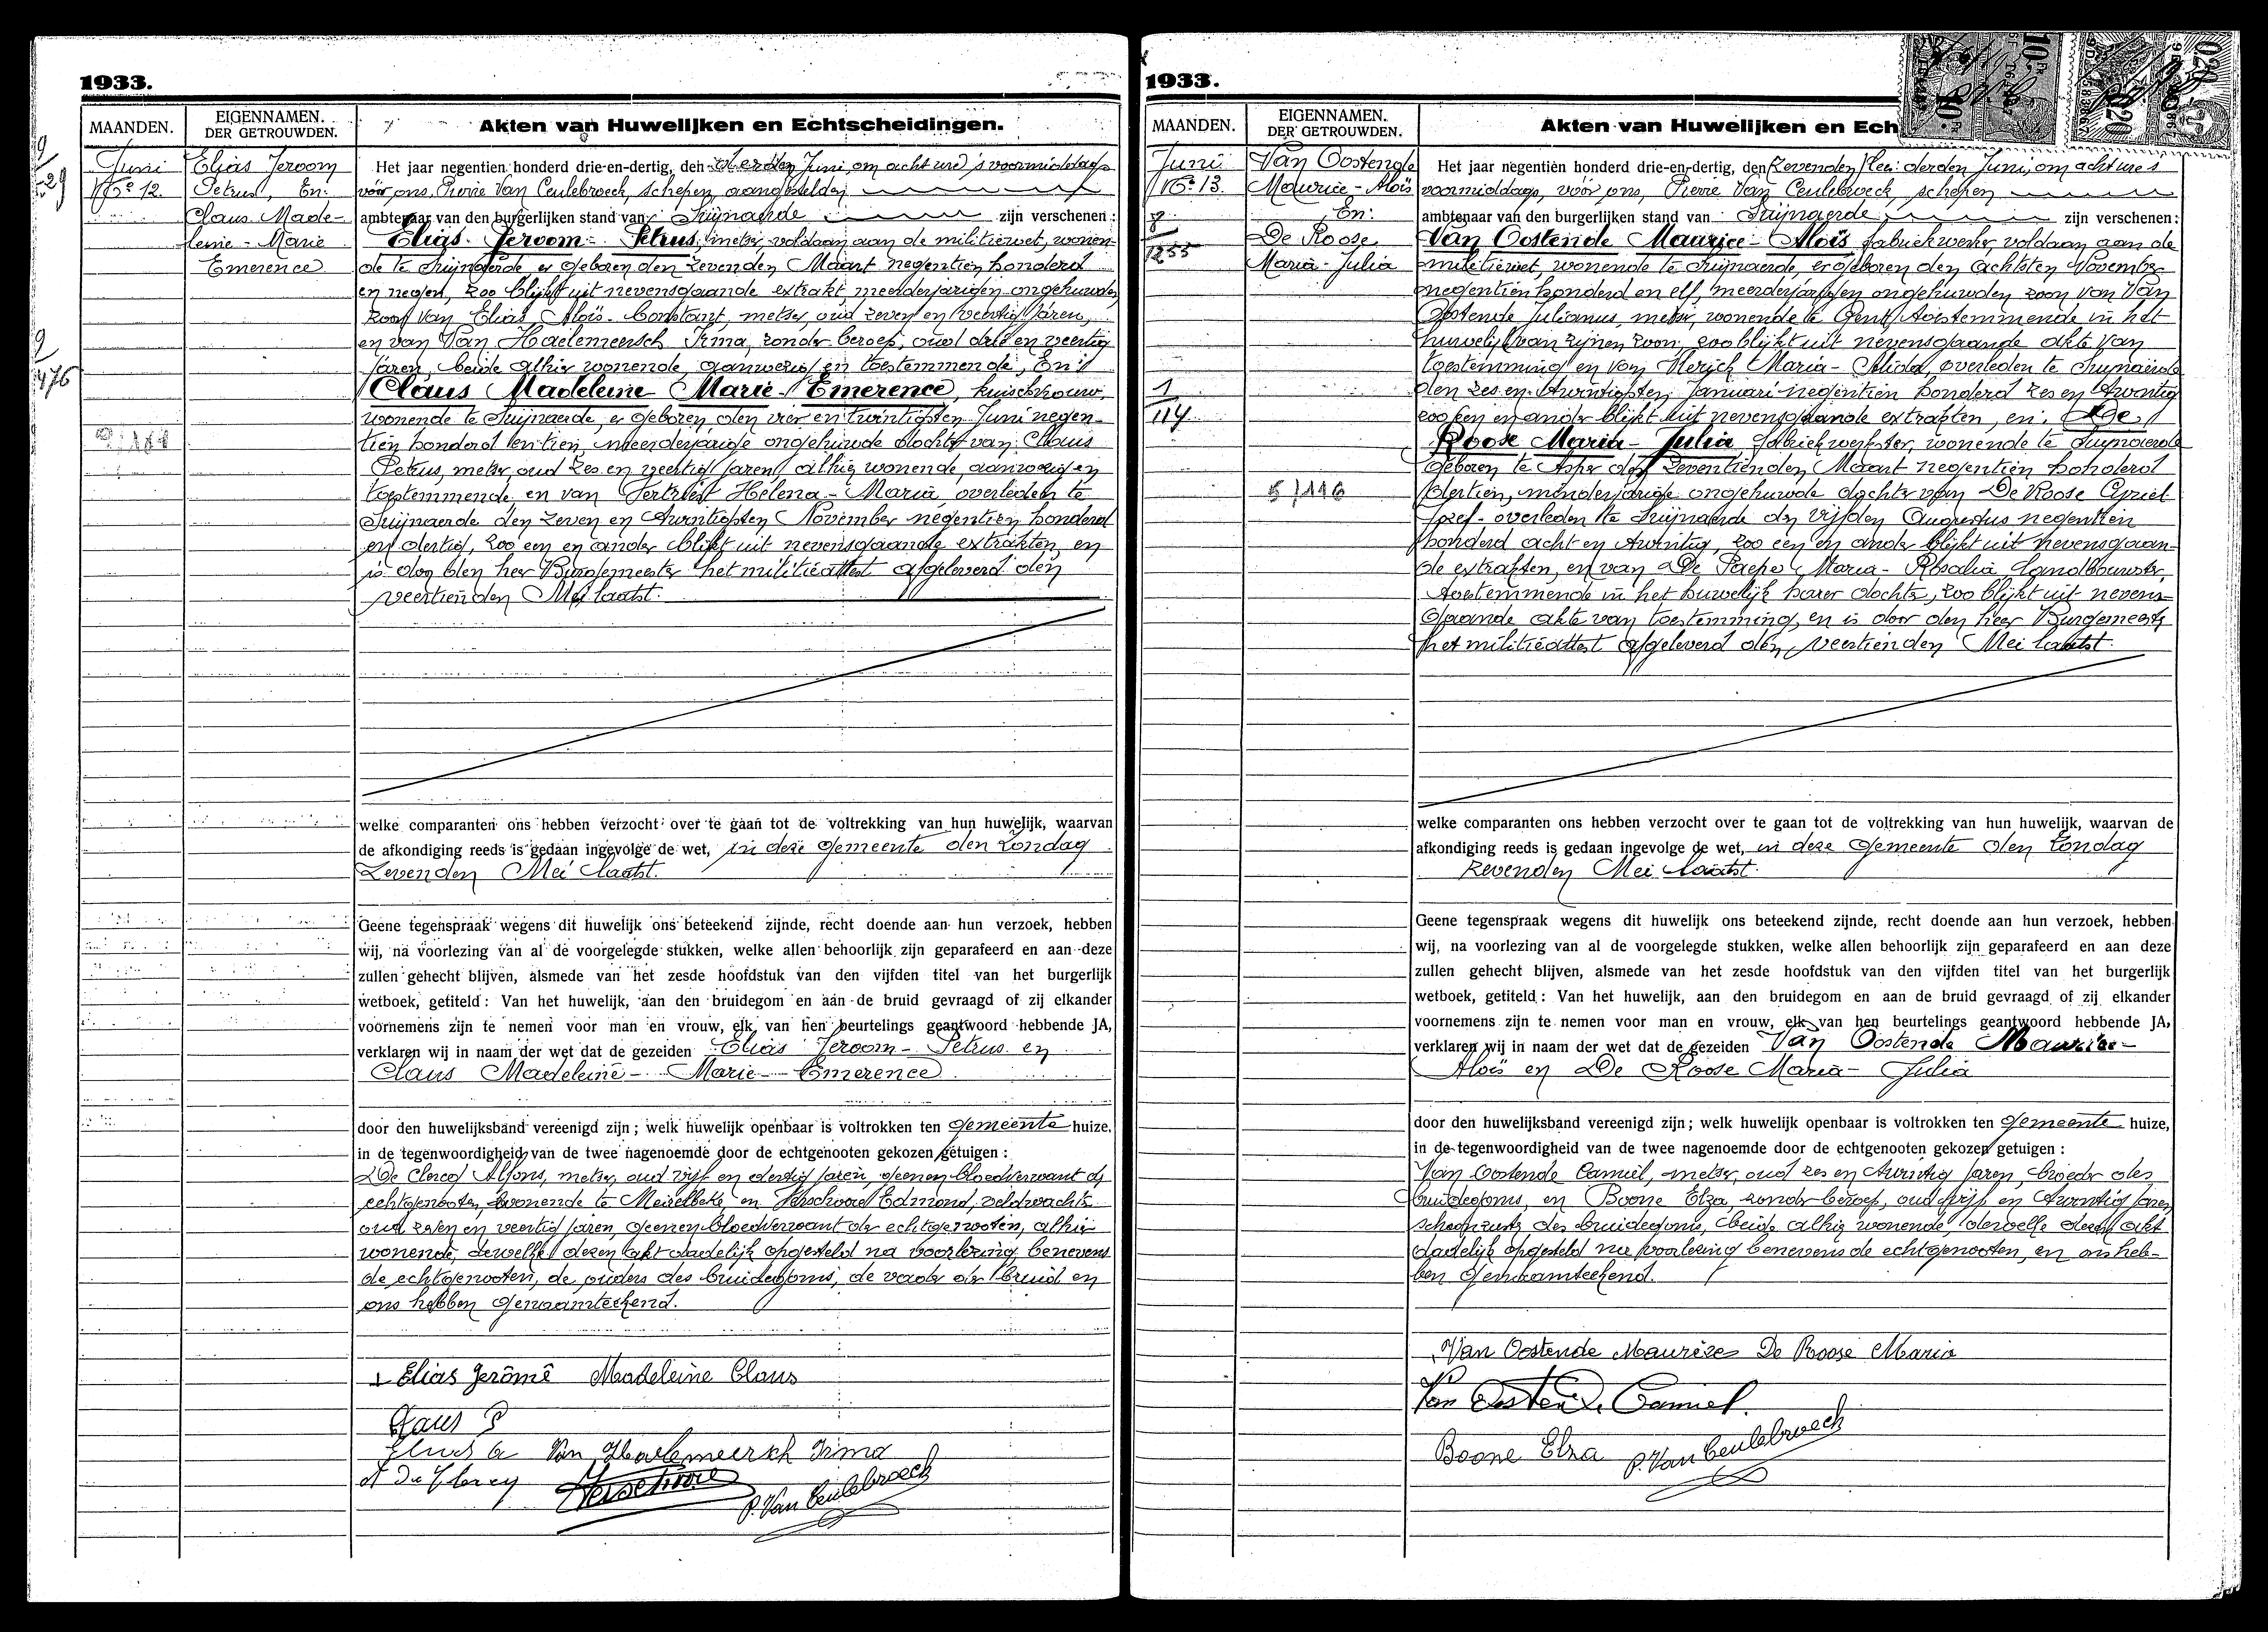 1933.
MAANDEN.
EIGENNAMEN.
DER GETROUWDEN.
Akten van Huwelijken en Echtscheidingen.
Juni
No 12
Elias Jeroom
Petrus, En:
Claus Made-
leine - Marie
Emerence
9
29
9
476
Het jaar negentien honderd drie-en-dertig, den derden Juni, om acht ure 's voormiddags
voor ons, Pierre Van Ceulebroeck, schepen, aangestelden
ambtenaar van den burgerlijken stand van Suijnaerde zijn verschenen:
Elias Jeroom - Petrus, metser, voldaan aan de militiewet, wonen-
de te Suijnaerde, er geboren den zevenden Maart negentien honderd
en negen, zoo blijkt uit nevensgaande extrakt, meerderjarigen ongehuwden
zoon van Elias Aloïs - Constant, metser, oud zeven en veertig jaren,
en van Van Haelemeersch Irma, zonder beroep, oud drie en veertig
jaren, beide alhier wonende, aanwezig en toestemmende, En:
Claus Madeleine Marie - Emerence, kuischvrouw,
wonende te Suijnaerde, er geboren den vier en twintigsten Juni negen-
tien honderd en tien, meerderjarige ongehuwde dochter van Claus
Petrus, metser, oud zes en veertig jaren, alhier wonende, aanwezig en
toestemmende en van Helena - Maria, overleden te
Suijnaerde den zeven en twintigsten November negentien honderd
en dertig, zoo een en ander blijkt uit nevensgaande extrakten, en
is door den heer Burgemeester het militieattest afgeleverd den
veertienden Mei laatst.
welke comparanten ons hebben verzocht over te gaan tot de voltrekking van hun huwelijk, waarvan
de afkondiging reeds is gedaan ingevolge de wet, in deze gemeente den Zondag
Zevenden Mei laatst.
Geene tegenspraak wegens dit huwelijk ons beteekend zijnde, recht doende aan hun verzoek, hebben
wij, na voorlezing van al de voorgelegde stukken, welke allen behoorlijk zijn geparafeerd en aan deze
zullen gehecht blijven, alsmede van het zesde hoofdstuk van den vijfden titel van het burgerlijk
wetboek, getiteld: Van het huwelijk, aan den bruidegom en aan de bruid gevraagd of zij elkander
voornemens zijn te nemen voor man en vrouw, elk van hen beurtelings geantwoord hebbende JA,
verklaren wij in naam der wet dat de gezeiden Elias Jeroom - Petrus en
Claus Madeleine - Marie - Emerence
door den huwelijksband vereenigd zijn; welk huwelijk openbaar is voltrokken ten gemeente huize,
in de tegenwoordigheid van de twee nagenoemde door de echtgenooten gekozen getuigen:
De Clercq Alfons, metser, oud vijf en dertig jaren, geenen bloedverwant der
echtgenooten, wonende te Meirelbeke, en Verschoore Edmond, veldwachter
oud zeven en veertig jaren, geenen bloedverwant der echtgenooten, alhier
wonende, dewelke dezen akt dadelijk opgesteld na voorlezing, benevens
de echtgenooten, de ouders des bruidegoms, de vader der bruid en
ons hebben genaamteekend.
Elias Jerômê Madeleine Claus
Claus P
Elias a Van Haelemeersch Irma
A De Clercq Verschoore P. Van Ceulebroeck
1933.
MAANDEN.
EIGENNAMEN.
DER GETROUWDEN.
Akten van Huwelijken en Ech
Juni
No 13.
Van Oostende
Maurice - Aloïs
En:
De Roose
Maria - Julia
8
1255
1
114
5/116
Het jaar negentien honderd drie-en-dertig, den derden Juni, om acht ure 's
voormiddags, voor ons, Pierre Van Ceulebroeck, schepen
ambtenaar van den burgerlijken stand van Suijnaerde zijn verschenen:
Van Oostende Maurice - Aloïs fabriekwerker, voldaan aan de
militiewet, wonende te Suijnaerde, er geboren den achtsten November
negentien honderd en elf, meerderjarigen ongehuwden zoon van Van
Oostende Julianus, metser, wonende te Gent, toestemmende in het
huwelijk van zijnen zoon, zoo blijkt uit nevensgaande akte van
toestemming en van Maria - Alida, overleden te Suijnaerde
den zes en twintigsten Januari negentien honderd zes en twintig
zoo een en ander blijkt uit nevensgaande extrakten, en; De
Roose Maria - Julia fabriekwerkster, wonende te Suijnaerde
geboren te Asper den zeventienden Maart negentien honderd
dertien, minderjarige ongehuwde dochter van De Roose Cyriel
Jozef - overleden te Suijnaerde den vijfden Augustus negentien
honderd acht en twintig, zoo een en ander blijkt uit nevensgaan-
de extrakten, en van De Paepe Maria - Rosalia landbouwster,
toestemmende in het huwelijk harer dochter, zoo blijkt uit nevens-
gaande akte van toestemming, en is door den heer Burgemeester
het militieattest afgeleverd den veertienden Mei laatst.
welke comparanten ons hebben verzocht over te gaan tot de voltrekking van hun huwelijk, waarvan de
afkondiging reeds is gedaan ingevolge de wet, in deze gemeente den Zondag
Zevenden Mei laatst.
Geene tegenspraak wegens dit huwelijk ons beteekend zijnde, recht doende aan hun verzoek, hebben
wij, na voorlezing van al de voorgelegde stukken, welke allen behoorlijk zijn geparafeerd en aan deze
zullen gehecht blijven, alsmede van het zesde hoofdstuk van den vijfden titel van het burgerlijk
wetboek, getiteld: Van het huwelijk, aan den bruidegom en aan de bruid gevraagd of zij elkander
voornemens zijn te nemen voor man en vrouw, elk van hen beurtelings geantwoord hebbende JA,
verklaren wij in naam der wet dat de gezeiden Van Oostende Maurice -
Aloïs en De Roose Maria - Julia
door den huwelijksband vereenigd zijn; welk huwelijk openbaar is voltrokken ten gemeente huize,
in de tegenwoordigheid van de twee nagenoemde door de echtgenooten gekozen getuigen:
Van Oostende Camiel, metser, oud zes en twintig jaren, broeder des
bruidegoms, en Boone Elza, zonder beroep, oud vijf en twintig jaren
schoonzuster des bruidegoms, beide alhier wonende, dewelke dezen akt
dadelijk opgesteld na voorlezing benevens de echtgenooten, en ons heb-
ben genaamteekend.
Van Oostende Maurice De Roose Maria
Van Oostende Camiel.
Boone Elza P. Van Ceulebroeck